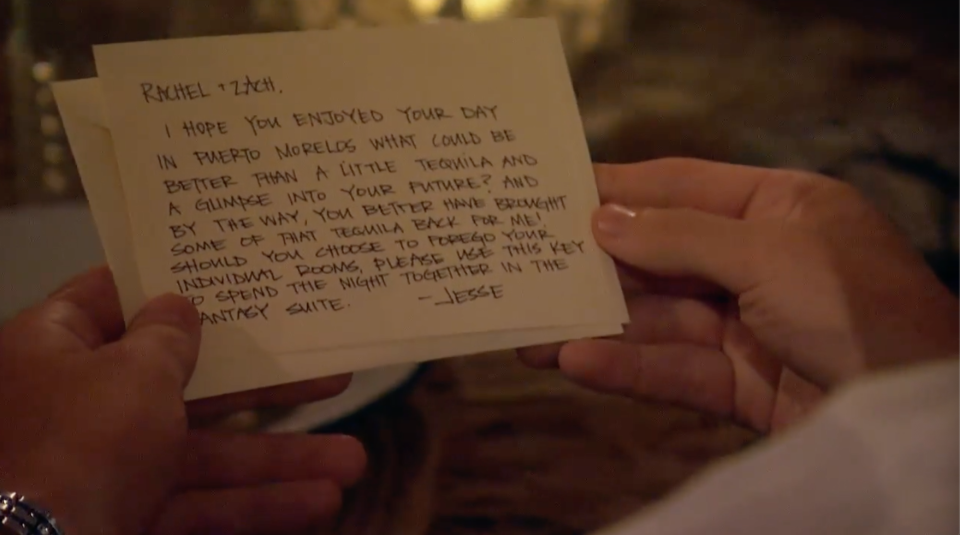 RACHEL + ZACH,
I HOPE YOU ENJOYED YOUR DAY
IN PUERTO MORELOS WHAT COULD BE
BETTER THAN A LITTLE TEQUILA AND
A GLIMPSE INTO YOUR FUTURE? AND
BY THE WAY, YOU BETTER HAVE BROUGHT
SOME OF THAT TEQUILA BACK FOR ME!
SHOULD YOU CHOOSE TO FOREGO YOUR
INDIVIDUAL ROOMS, PLEASE USE THIS KEY
TO SPEND THE NIGHT TOGETHER IN THE
FANTASY SUITE. -JESSE